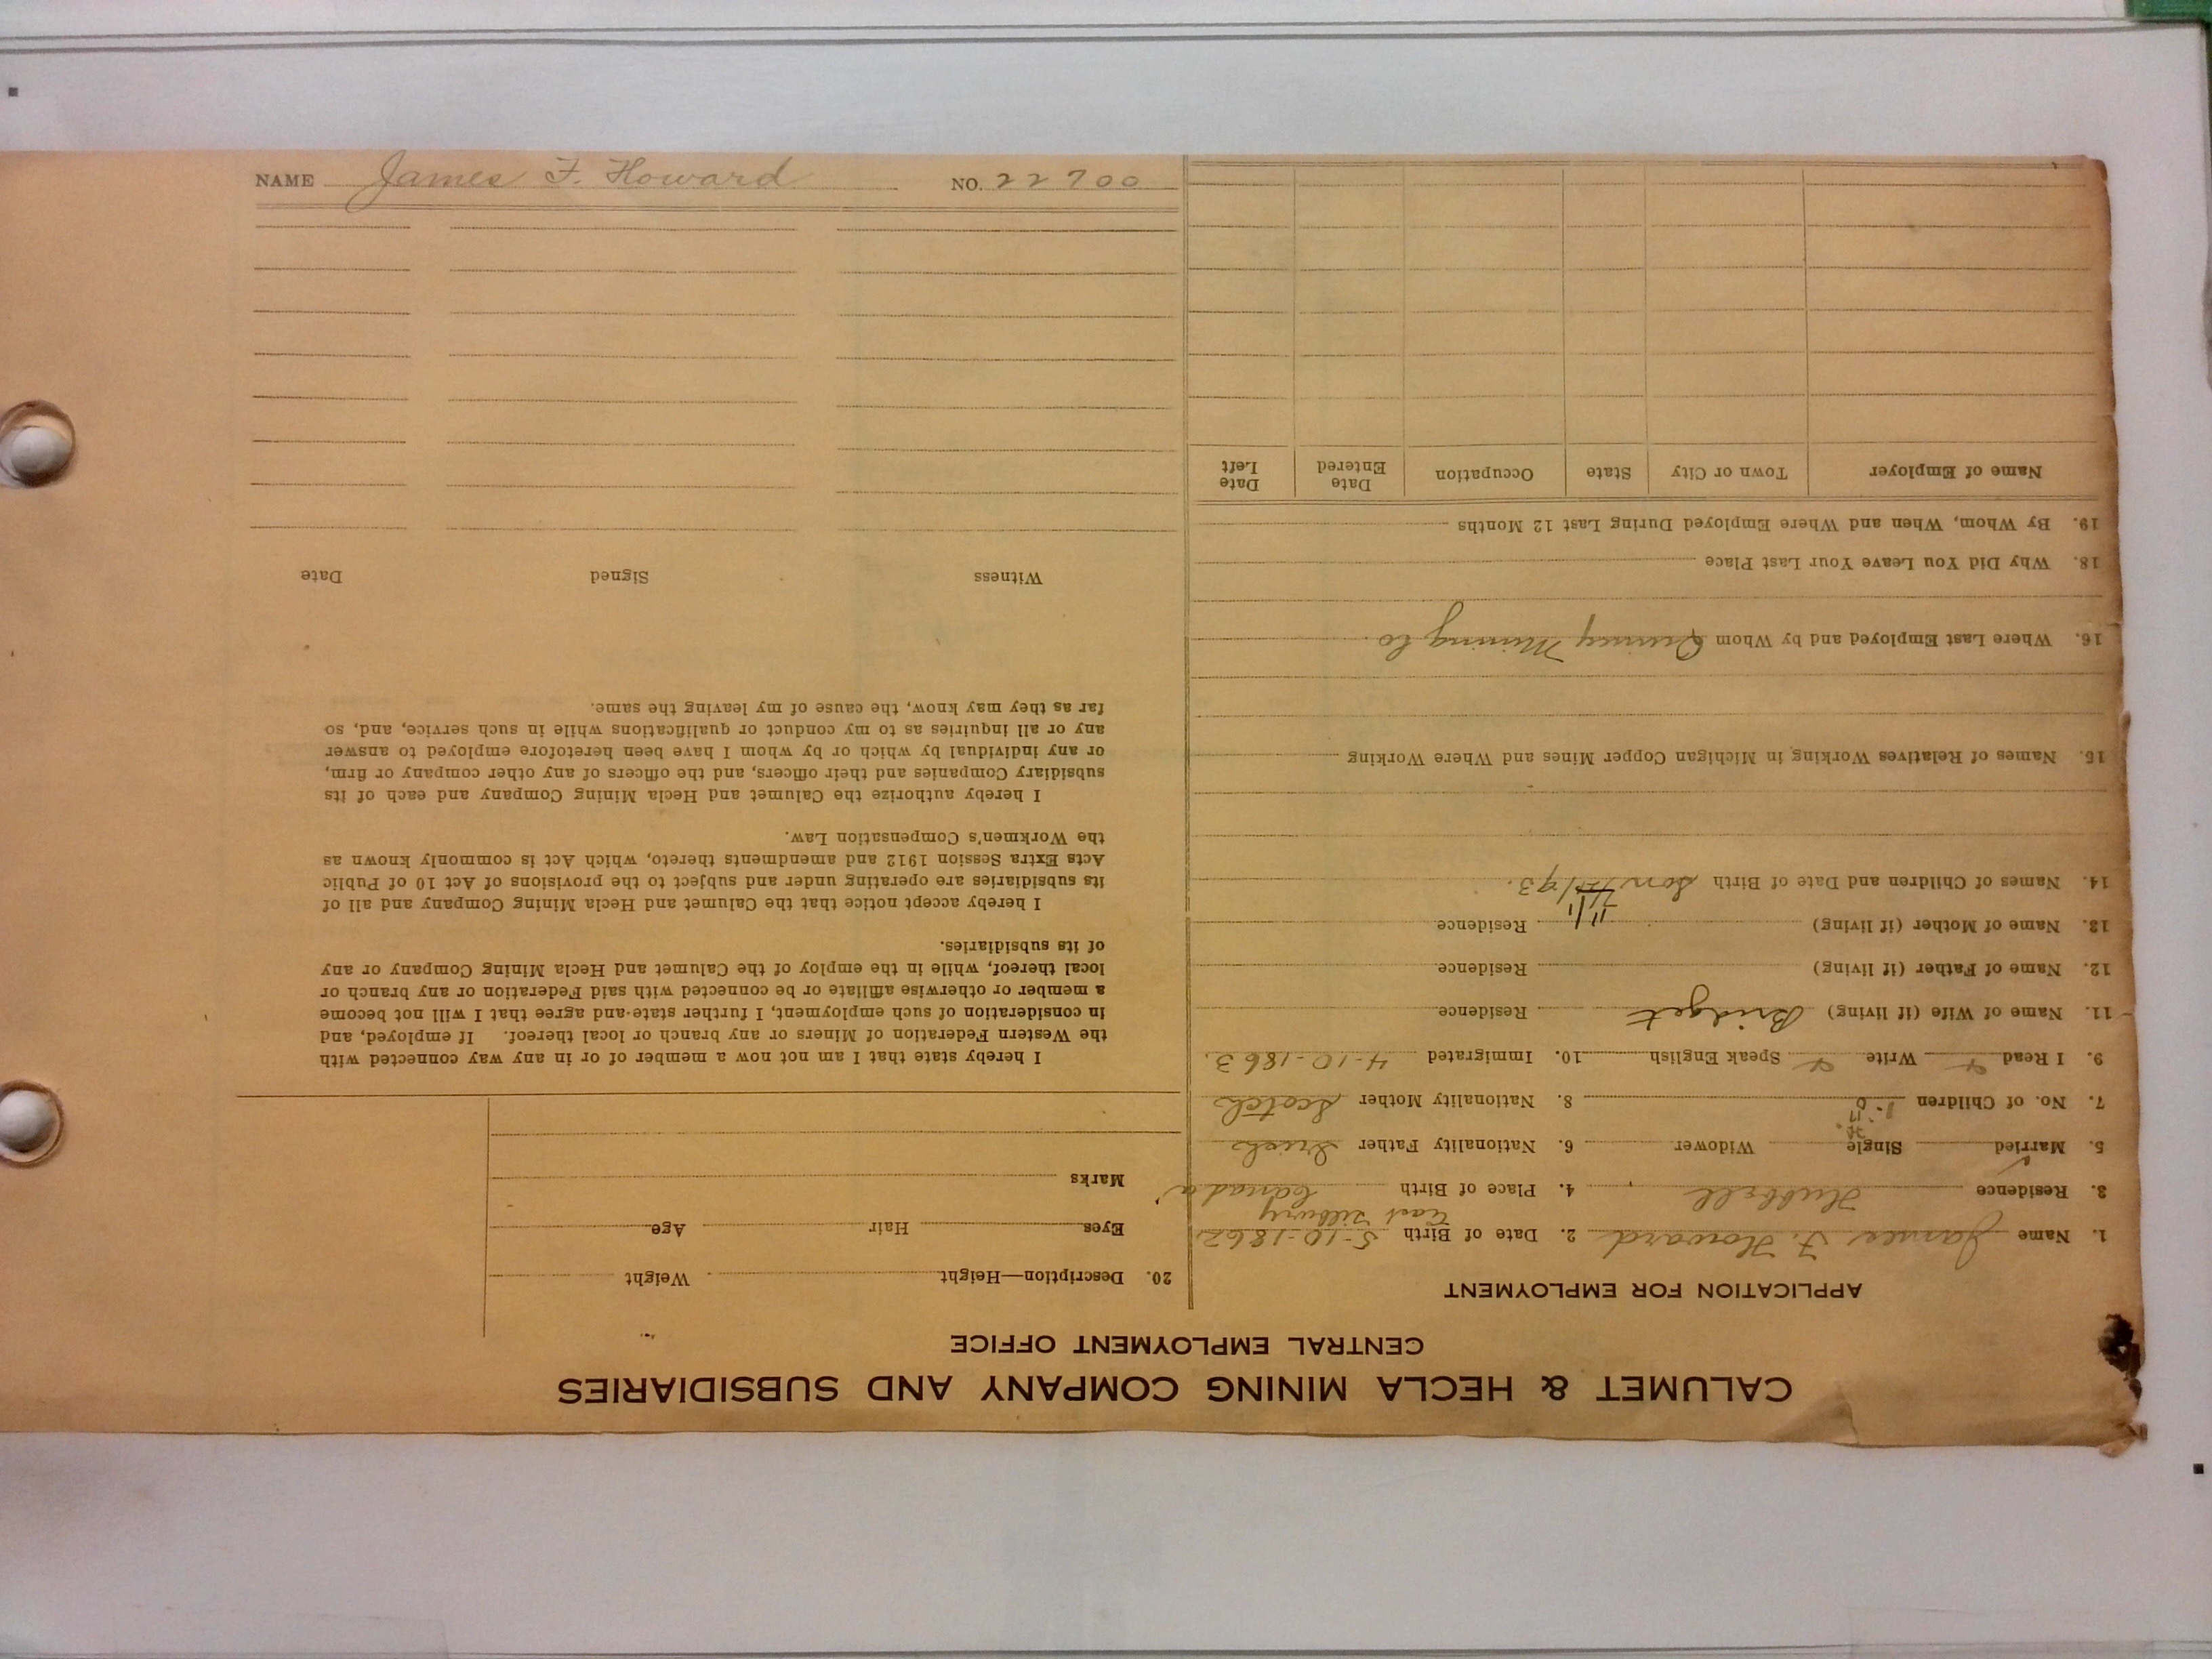 CALUMET & HECLA MINING COMPANY AND SUBSIDIARIES
CENTRAL EMPLOYMENT OFFICE
APPLICATION FOR EMPLOYMENT
1. Name James F. Howard 2. Date of Birth 5-10-1862
East Tilbury
3. Residence Hubbell 4. Place of Birth Canada
5. Married Single Widower 6. Nationality Father Irish
7. No. of Children 8. Nationality Mother Scotch
9. I Read Write Speak English 10. Immigrated 4-10-1863.
11. Name of Wife (if living) Bridget Residence
12. Name of Father (if living) Residence
13. Name of Mother (if living) Residence
14. Names of Children and Date of Birth Son
15. Names of Relatives Working in Michigan Copper Mines and Where Working
16. Where Last Employed and by Whom Quincy Mining Co.
18. Why Did You Leave Your Last Place
19. By Whom, When and Where Employed During Last 12 Months
Name of Employer Town or City State Occupation Date Entered Date Left
20. Description—Height Weight
Eyes Hair Age
Marks
I hereby state that I am not now a member of or in any way connected with
the Western Federation of Miners or any branch or local thereof. If employed, and
in consideration of such employment, I further state and agree that I will not become
a member or otherwise affiliate or be connected with said Federation or any branch or
local thereof, while in the employ of the Calumet and Hecla Mining Company or any
of its subsidiaries.
I hereby accept notice that the Calumet and Hecla Mining Company and all of
its subsidiaries are operating under and subject to the provisions of Act 10 of Public
Acts Extra Session 1912 and amendments thereto, which Act is commonly known as
the Workmen's Compensation Law.
I hereby authorize the Calumet and Hecla Mining Company and each of its
subsidiary Companies and their officers, and the officers of any other company or firm,
or any individual by which or by whom I have been heretofore employed to answer
any or all inquiries as to my conduct or qualifications while in such service, and, so
far as they may know, the cause of my leaving the same.
Witness Signed Date
NAME James F. Howard NO. 22700